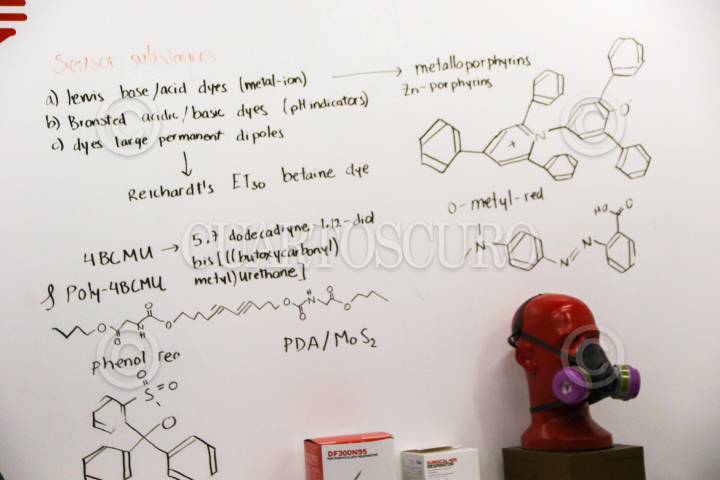 Sensor substances
a) lewis base/acid dyes (metal-ion) → metalloporphyrins
Zn-porphyrins
b) Bronsted acidic/basic dyes (pH indicators)
c) dyes large permanent dipoles
↓
Reichardt's ET30 betaine dye
+ N O-
O-metyl-red
HO O
N N N
4BCMU → 5,7 dodecadiyne-1,12-diol
bis[((butoxycarbonyl)
metyl)urethane]
Poly-4BCMU
O O N H O O O O N H O O
PDA/MoS2
phenol red
O S O
O
CUARTOSCURO
©
DF300N95
SURGICAL N95
RESPIRATOR